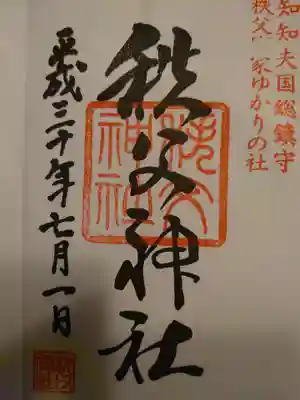 知知夫国総鎮守
秩父 家ゆかりの社
秩父神社
秩父神社
平成三十年七月一日